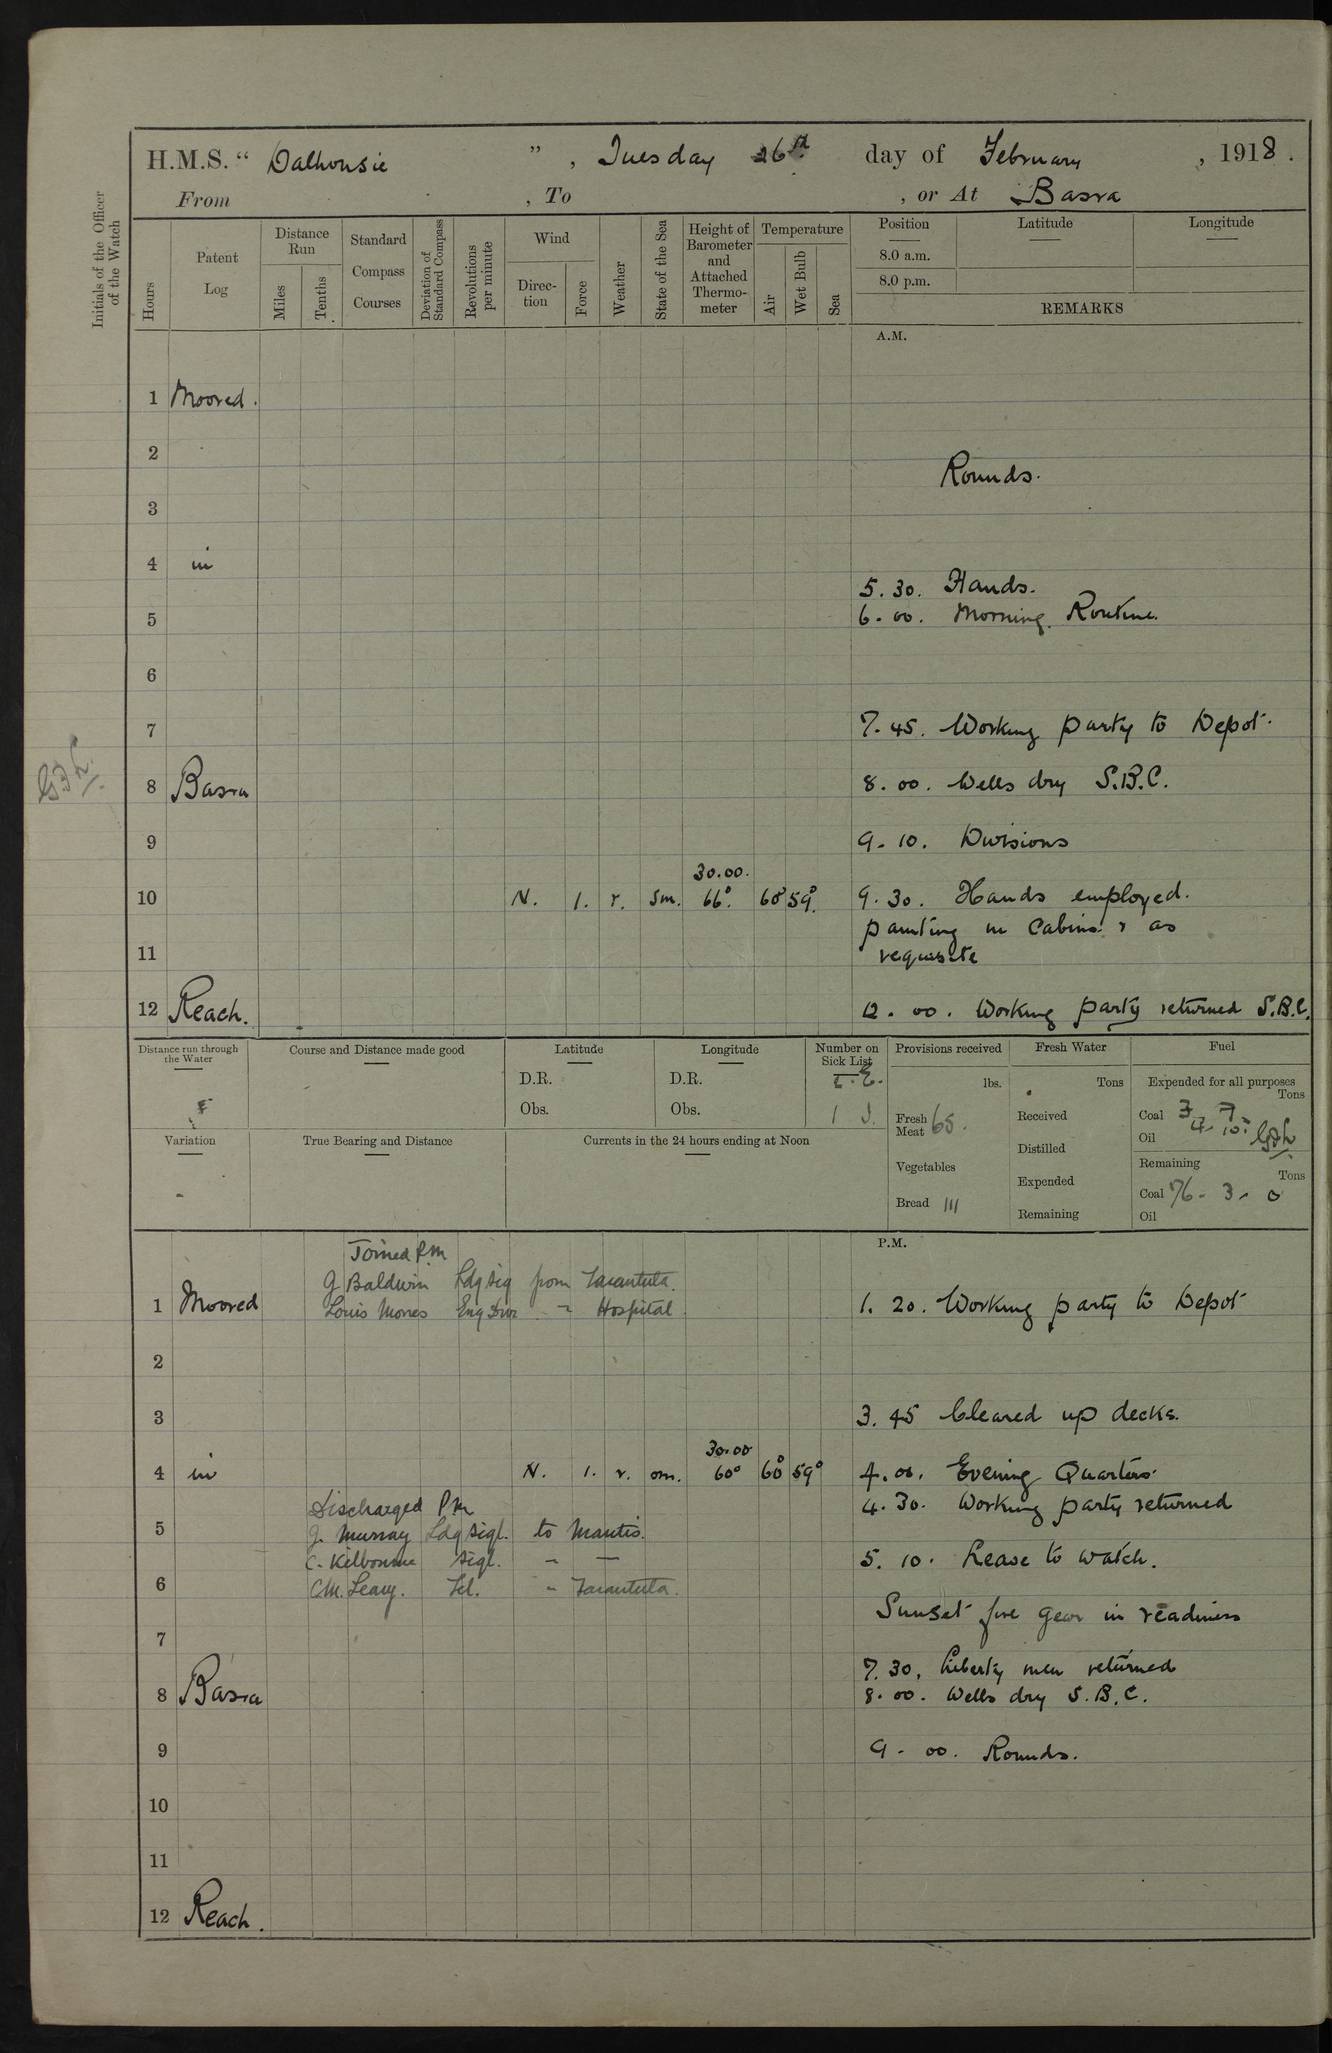 H.M.S. “ Dalhousie ”, Tuesday 26th day of February, 1918.
From , To , or At Basra
Initials of the Officer of the Watch
Hours
Patent Log
Distance Run
Miles
Tenths
Standard Compass Courses
Deviation of Standard Compass
Revolutions per minute
Wind
Direction
Force
Weather
State of the Sea
Height of Barometer and Attached Thermometer
Temperature
Air
Wet Bulb
Sea
Position
8.0 a.m.
8.0 p.m.
Latitude
Longitude
REMARKS
A.M.
1 Moored.
2
Rounds.
3
4 in
5.30. Hands.
5
6.00. Morning Routine.
6
7
7.45. Working party to Depot.
8 Basra
8.00. Wells dry S.B.C.
9
9.10. Divisions
30.00.
10 N. 1. r. sm. 66°. 60° 59°. 9.30. Hands employed.
painting in Cabins & as
11
requisite
12 Reach.
12.00. Working party returned S.B.C.
Distance run through the Water
Course and Distance made good
Latitude
D.R.
Obs.
Longitude
D.R.
Obs.
Number on Sick List
1
Provisions received
lbs.
Fresh Meat 65.
Vegetables
Bread 111
Fresh Water
Tons
Received
Distilled
Expended
Remaining
Fuel
Expended for all purposes
Tons
Coal
Oil
Remaining
Tons
Coal 76 - 3 - 0
Oil
Variation
True Bearing and Distance
Currents in the 24 hours ending at Noon
P.M.
Joined P.M
G Baldwin Ldg Sig from Tarantula.
1 Moored Louis Mones Eng Dvr " Hospital. 1.20. Working party to Depot
2
3
3.45 Cleared up decks.
30.00
4 in N. 1. r. om. 60° 60° 59° 4.00. Evening Quarters.
Discharged P.M
4.30. Working party returned
5 J. Murray Ldg Sigl. to Mantis.
C. Kilbourne Sigl. " —
5.10. Leave to watch.
6 C.M. Leary. Tel. " Tarantula.
Sunset fire gear in readiness
7
7.30. Liberty men returned
8 Basra
8.00. Wells dry S.B.C.
9
9.00. Rounds.
10
11
12 Reach.